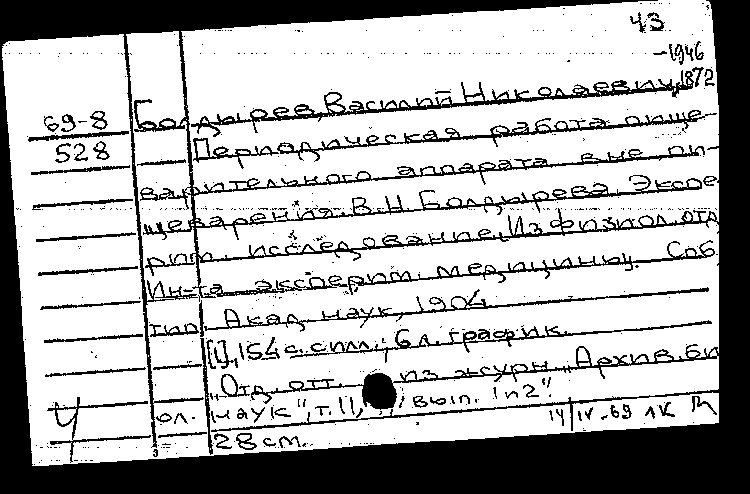 43
-1946
69-8 Болдырев, Василий Николаевич, 1872
528 Периодическая работа пище-
варительного аппарата вне пи-
щеварения. В.Н. Болдырева. Экспе-
рим. исследование. Из физиол. отд.
Ин-та эксперим. медицины. Спб,
тип. Акад. наук, 1904
[1], 154 с. с ил.; 6 л. график.
"Отд. отт. из журн. "Архив. би
ол. наук", т. 11, вып. 1 и 2".
28 см. 14/IV-69 ЛК